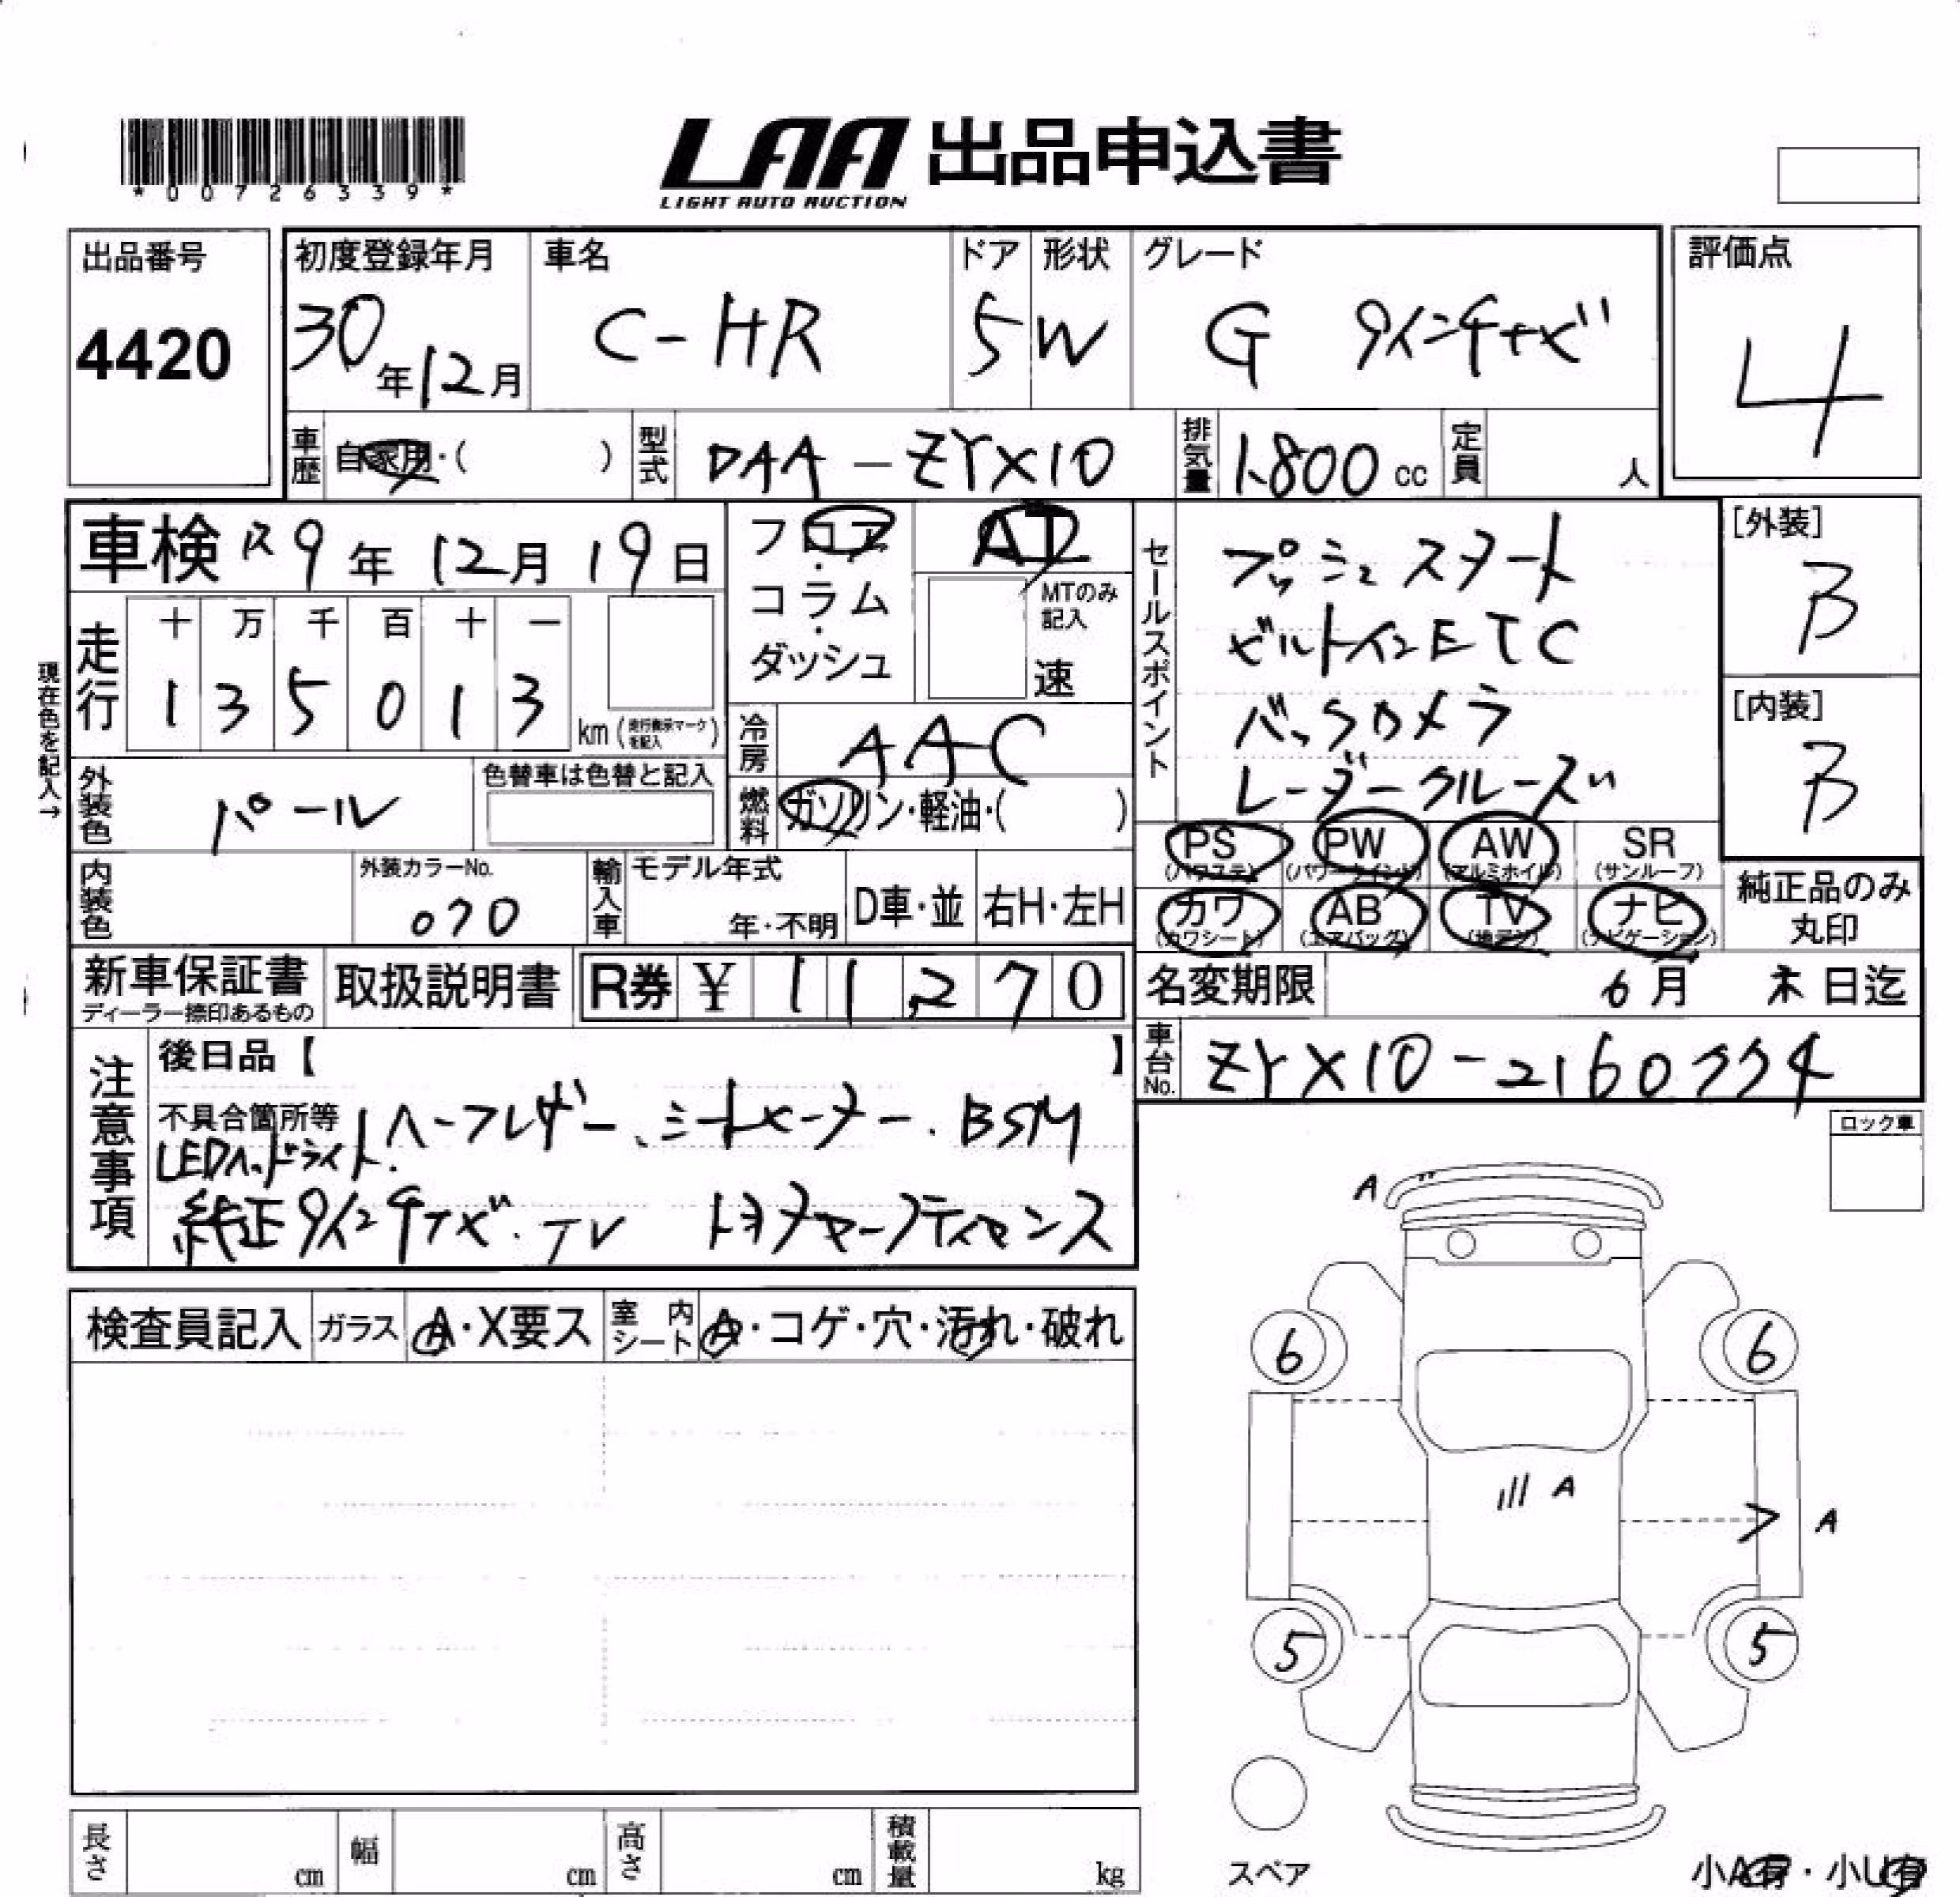 *00726339*
LAA 出品申込書
LIGHT AUTO AUCTION
出品番号
4420
初度登録年月
30年12月
車名
C-HR
ドア
5
形状
W
グレード
G 9インチナビ
評価点
4
車歴
自家用・( )
型式
DAA-ZYX10
排気量
1800 cc
定員
人
車検 R9年12月19日
フロア・コラム・ダッシュ
AT
MTのみ記入
速
走行
十 万 千 百 十 一
1 3 5 0 1 3
km (走行表示マークを記入)
現在色を記入→
冷房
AAC
外装色
パール
色替車は色替と記入
燃料
ガソリン・軽油・( )
セールスポイント
プッシュスタート
ビルトインETC
バックカメラ
レーダークルーズ
[外装]
B
[内装]
B
PS (パワステ)
PW (パワーウインド)
AW (アルミホイル)
SR (サンルーフ)
カワ (カワシート)
AB (エアバッグ)
TV (地デジ)
ナビ (ナビゲーション)
純正品のみ丸印
内装色
外装カラーNo.
070
輸入車
モデル年式
年・不明
D車・並
右H・左H
新車保証書
ディーラー捺印あるもの
取扱説明書
R券 ¥ 11,270
名変期限
6月 末日迄
車台No.
ZYX10-2160774
注意事項
後日品【 】
不具合箇所等 ハーフレザー、シートヒーター、BSM
LEDヘッドライト、
純正9インチナビ・TV トヨタセーフティセンス
ロック車
検査員記入
ガラス
A・X要ス
室内シート
A・コゲ・穴・汚れ・破れ
A
6
6
A
A
5
5
スペア
長さ
cm
幅
cm
高さ
cm
積載量
kg
小A有・小U有